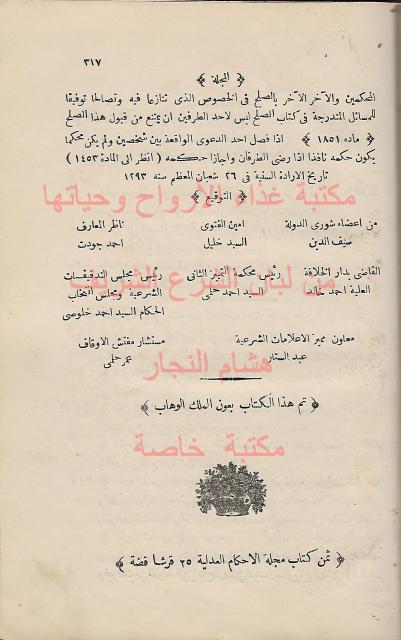 ٣١٧
﴿ المجلة ﴾
المحكمين والآخر الآخر بالصلح فى الخصوص الذى تنازعا فيه وتصالحا توفيقا
للمسائل المندرجة فى كتاب الصلح ليس لاحد الطرفين ان يمتنع من قبول هذا الصلح
﴿ ماده ١٨٥١ ﴾ اذا فصل احد الدعوى الواقعة بين شخصين ولم يكن محكما
يكون حكمه نافذا اذا رضى الطرفان واجازا حكمه ( انظر الى المادة ١٤٥٣ )
تاريخ الارادة السنية فى ٢٦ شعبان المعظم سنه ١٢٩٣
مكتبة غذاء الأرواح وحياتها
﴿ التوقيع ﴾
من اعضاء شورى الدولة امين الفتوى ناظر المعارف
سيف الدين السيد خليل احمد جودت
القاضى بدار الخلافة رئيس محكمة التمييز الثانى رئيس مجلس التدقيقات
من لبان الشرع الشريف
العلية احمد خالد السيد احمد حلمى الشرعية ومجلس انتخاب
الحكام السيد احمد خلوصى
معاون مميز الاعلامات الشرعية مستشار مفتش الاوقاف
عبد الستار عمر حلمى
هشام النجار
﴿ تم هذا الكتاب بعون الملك الوهاب ﴾
مكتبة خاصة
﴿ ثمن كتاب مجلة الاحكام العدلية ٢٥ قرشا فضة ﴾